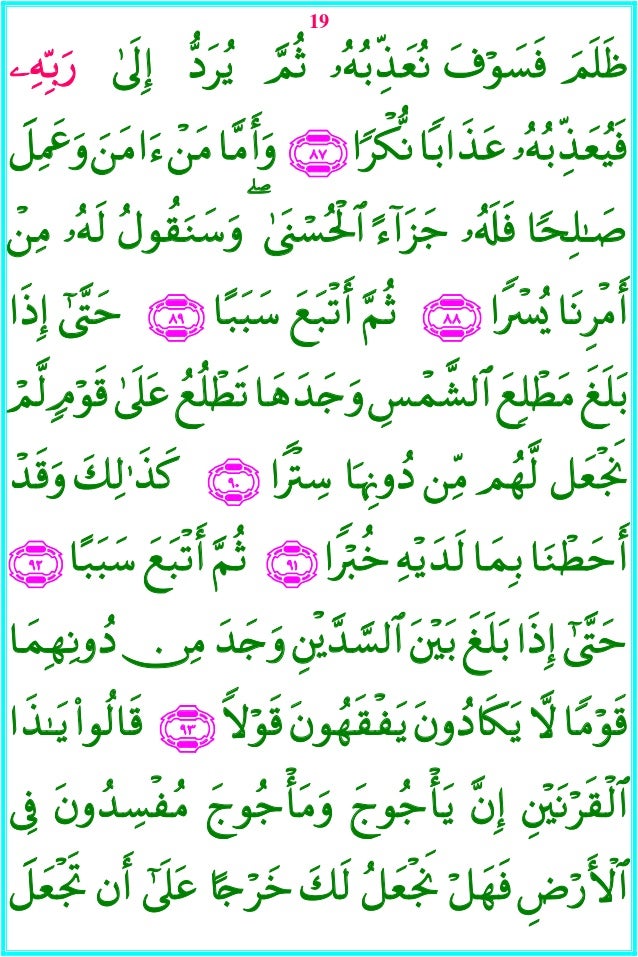 19
ظَلَمَ فَسَوْفَ نُعَذِّبُهُۥ ثُمَّ يُرَدُّ إِلَىٰ رَبِّهِۦ
فَيُعَذِّبُهُۥ عَذَابًا نُّكْرًا ٨٧ وَأَمَّا مَنْ ءَامَنَ وَعَمِلَ
صَـٰلِحًا فَلَهُۥ جَزَآءً ٱلْحُسْنَىٰ ۖ وَسَنَقُولُ لَهُۥ مِنْ
أَمْرِنَا يُسْرًا ٨٨ ثُمَّ أَتْبَعَ سَبَبًا ٨٩ حَتَّىٰٓ إِذَا
بَلَغَ مَطْلِعَ ٱلشَّمْسِ وَجَدَهَا تَطْلُعُ عَلَىٰ قَوْمٍ لَّمْ
نَجْعَل لَّهُم مِّن دُونِهَا سِتْرًا ٩٠ كَذَٰلِكَ وَقَدْ
أَحَطْنَا بِمَا لَدَيْهِ خُبْرًا ٩١ ثُمَّ أَتْبَعَ سَبَبًا ٩٢
حَتَّىٰٓ إِذَا بَلَغَ بَيْنَ ٱلسَّدَّيْنِ وَجَدَ مِن دُونِهِمَا
قَوْمًا لَّا يَكَادُونَ يَفْقَهُونَ قَوْلًا ٩٣ قَالُوا۟ يَـٰذَا
ٱلْقَرْنَيْنِ إِنَّ يَأْجُوجَ وَمَأْجُوجَ مُفْسِدُونَ فِى
ٱلْأَرْضِ فَهَلْ نَجْعَلُ لَكَ خَرْجًا عَلَىٰٓ أَن تَجْعَلَ